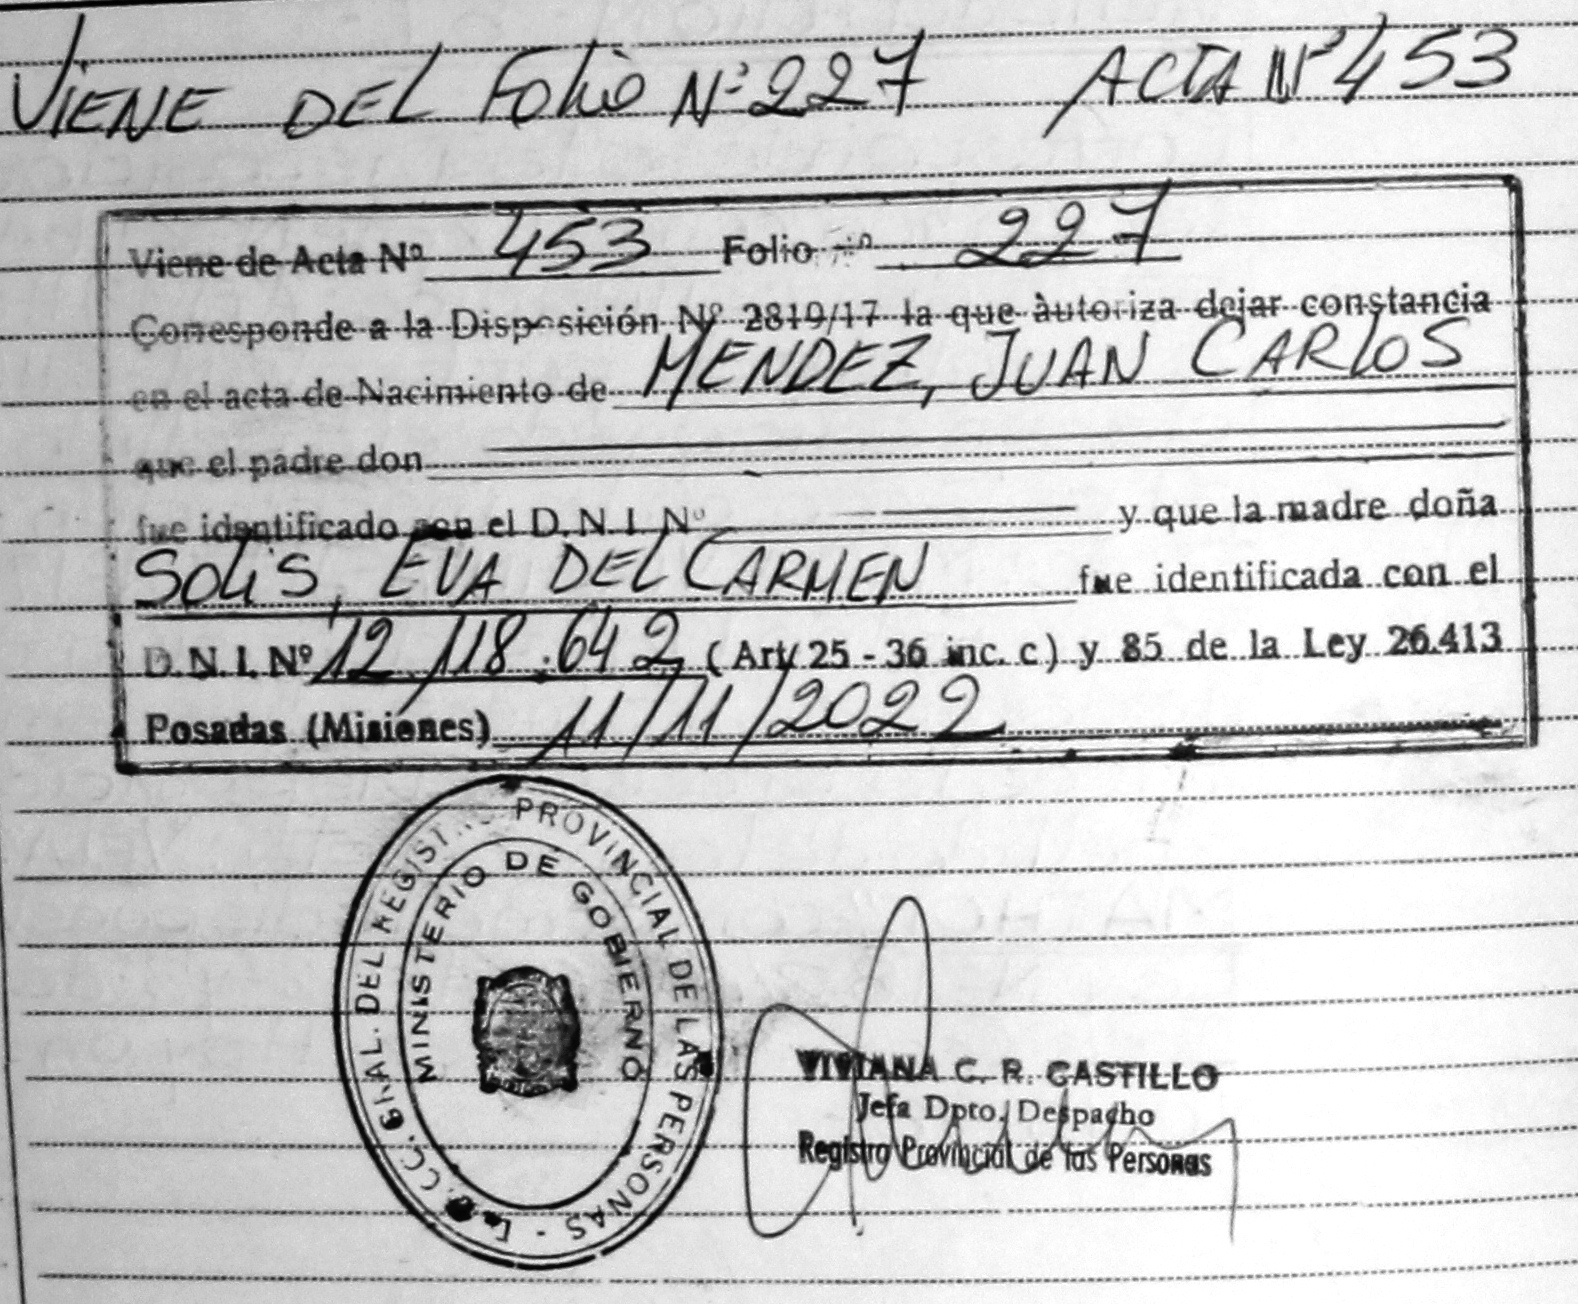 VIENE DEL FOLIO Nº 227 ACTA Nº 453
Viene de Acta Nº 453 Folio nº 227
Corresponde a la Disposición Nº 2819/17 la que autoriza dejar constancia
en el acta de Nacimiento de MENDEZ, JUAN CARLOS
que el padre don
fue identificado con el D.N.I. Nº y que la madre doña
SOLIS, EVA DEL CARMEN fue identificada con el
D.N.I. Nº 12.118.642 (Art. 25 - 36 inc. c) y 85 de la Ley 26.413
Posadas (Misiones) 11/11/2022
GRAL. DEL REGISTRO PROVINCIAL DE LAS PERSONAS -
MINISTERIO DE GOBIERNO
VIVIANA C. R. CASTILLO
Jefa Dpto. Despacho
Registro Provincial de las Personas